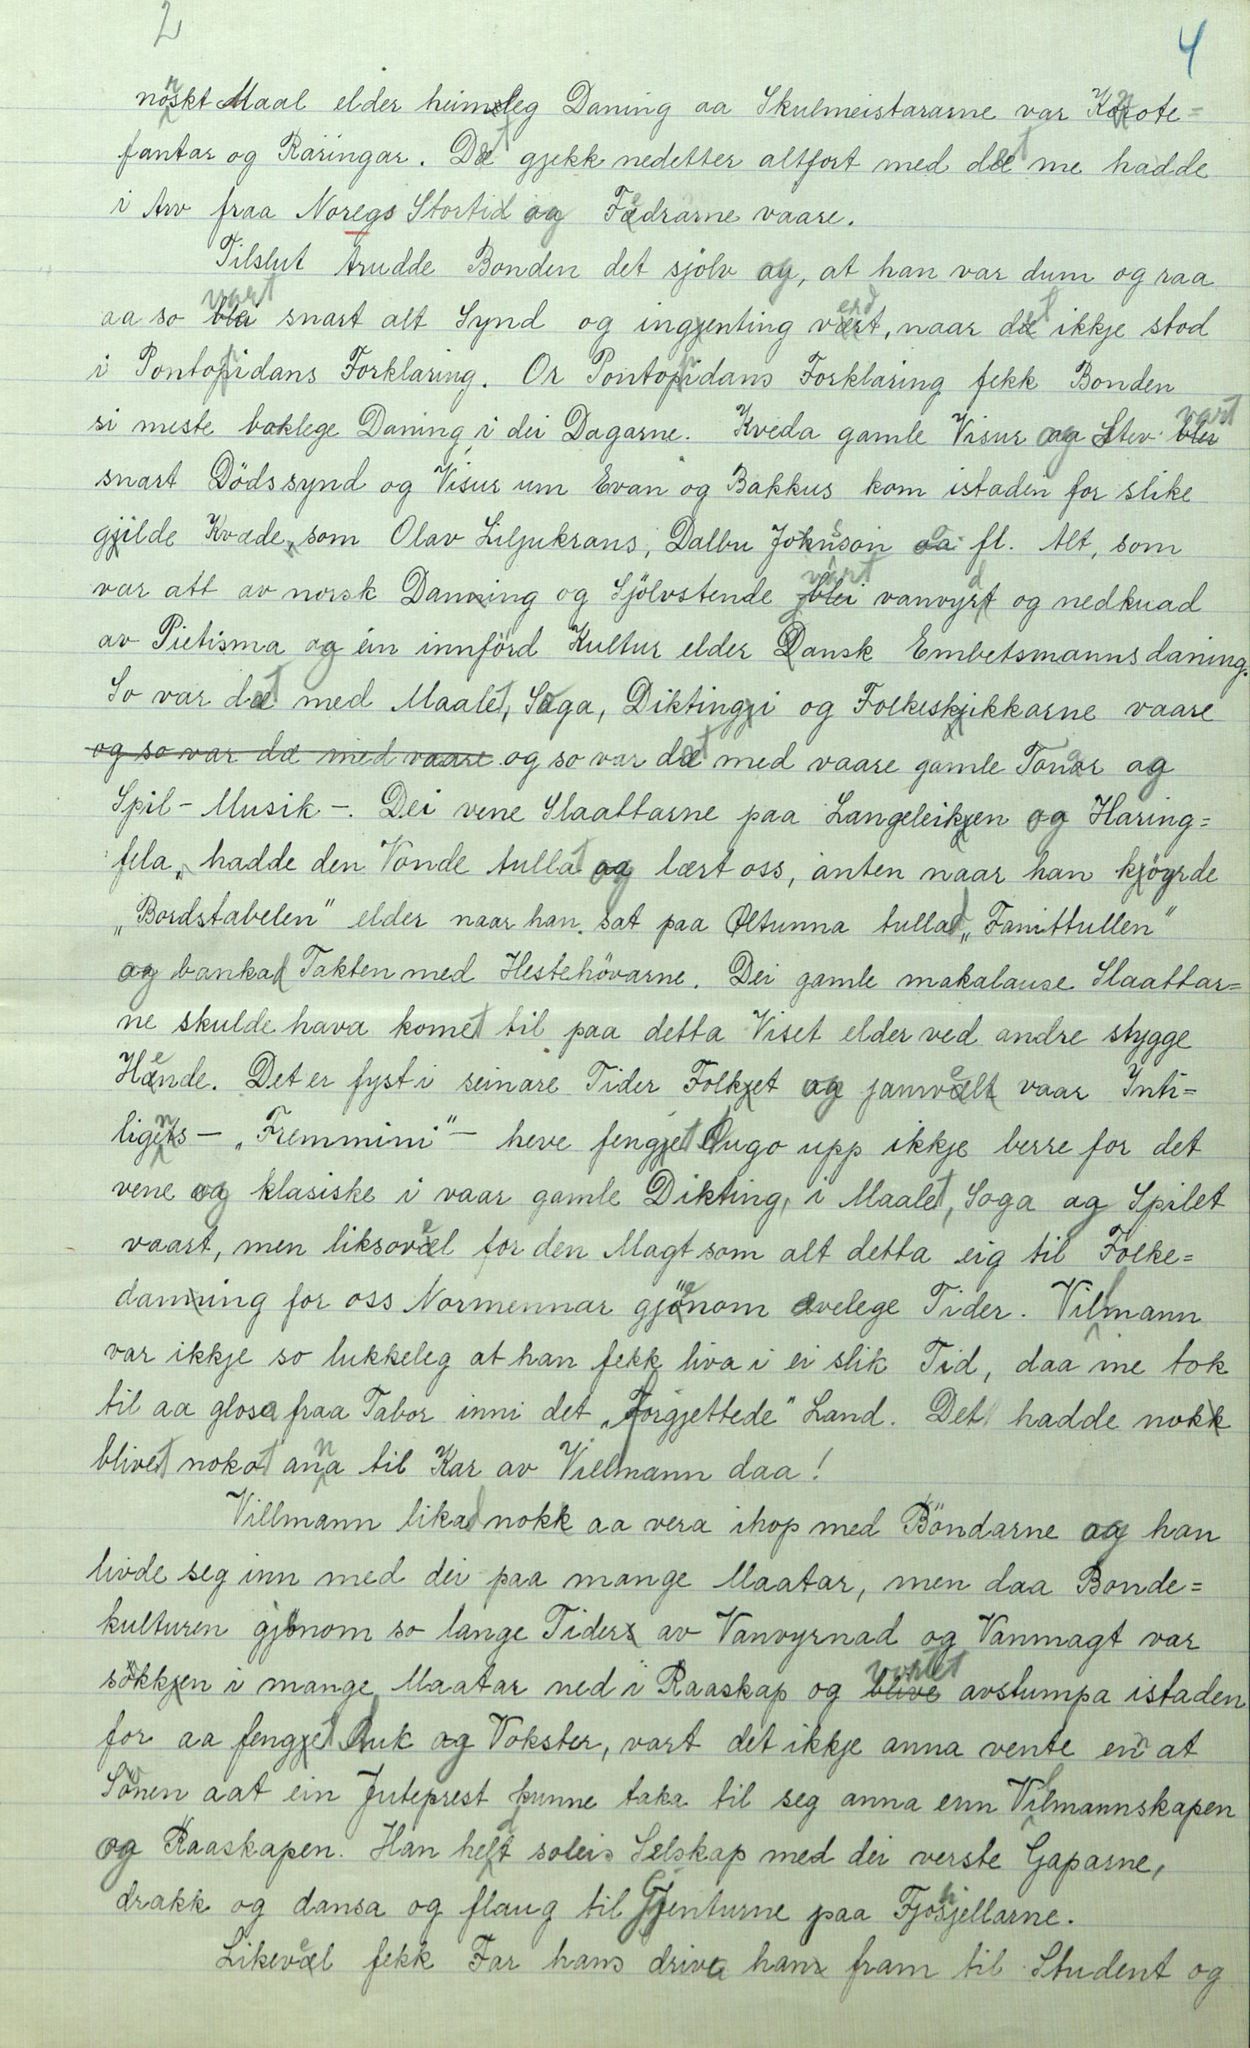 2 4
norskt Maal elder heimleg Daning aa Skulmeistararne var Kote=
fantar og Räringar. Det gjekk nedetter altfort med det me hadde
i Arv fraa Noregs Stortid og Fedrarne vaare.
Tilslut trudde Bonden det sjölv og, at han var dum og raa
aa so vart snart alt Synd og ingenting verd, naar det ikkje stod
i Pontoppidans Forklaring. Or Pontoppidans Forklaring fekk Bonden
si meste boklege Daning i dei Dagarne. Kveda gamle Visur og Stev vart
snart Dödssynd og Visur um Evan og Bakkus kom istaden for slike
gilde Kvæde, som Olav Liljukrans, Dalbu Jonson o. fl. Alt, som
var att av norsk Daning og Sjölvstende vart vanvyrd og nedkuad
av Pietisma og ein innförd Kultur elder Dansk Embetsmannsdaning.
So var det med Maalet, Soga, Diktingi og Folkeskikkarne vaare
og so var dæ med vaare og so var det med vaare gamle Tonar og
Spil - Musik -. Dei vene Slaattarne paa Langeleiken og Haring=
fela, hadde den Vonde tullat og lært oss, anten naar han köyrde
„Bordstabelen" elder naar han sat paa Øltunna tullad „Fanittullen"
og bankad Takten med Hestehövarne. Dei gamle makalause Slaattar=
ne skulde hava komet til paa detta Viset elder ved andre stygge
Hende. Det er fyst i seinare Tider Folket og jamvel vaar Inti=
ligens - „Fremmini" - heve fenget Augo upp ikkje berre for det
vene og klasiske i vaar gamle Dikting, i Maalet, Soga og Spilet
vaart, men liksovel for den Magt som alt detta eig til Folke=
daning for oss Normennar gjenom ævelege Tider. Villmann
var ikkje so lukkeleg at han fekk liva i ei slik Tid, daa me tok
til aa glosa fraa Tabor inni det „Forgjettede" Land. Det hadde nok
blivet nokot anna til Kar av Villmann daa!
Villmann likad nokk aa vera ihop med Böndarne og han
livde seg inn med dei paa mange Maatar, men daa Bonde=
kulturen gjönom so lange Tider av Vanvyrnad og Vanmagt var
sökken i mange Maatar ned i Raaskap og vortet avstumpa istaden
for aa fenget Auk og Vokster, vart det ikkje anna vente en at
Sonen aat ein Juteprest kunne taka til seg anna enn Villmannskapen
og Raaskapen. Han held soleis Selskap med dei verste Gaparne,
drakk og dansa og flaug til Gjenturne paa Fjoshjellarne.
Likevel fekk Far hans driva han fram til Student og